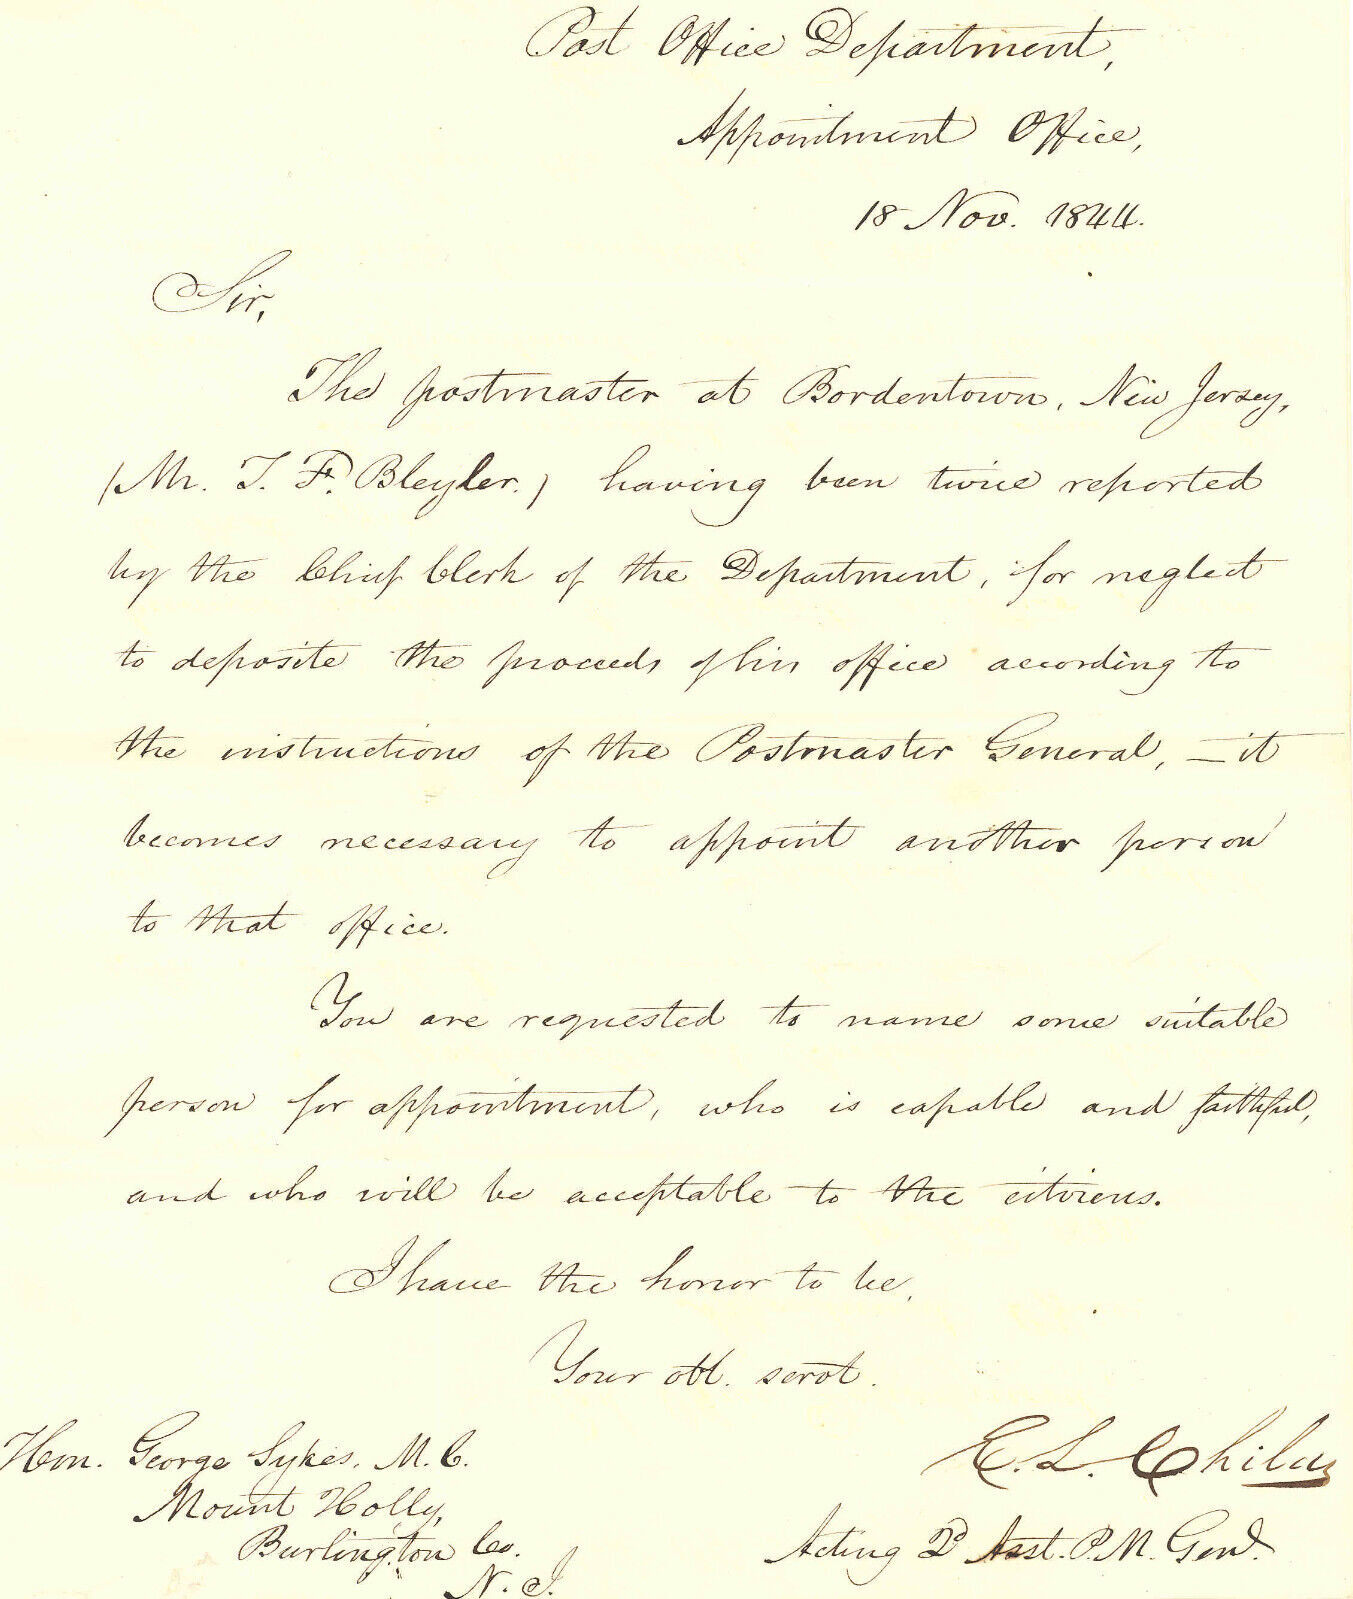 Post Office Department,
Appointment Office,
18 Nov. 1844.
Sir,
The postmaster at Bordentown, New Jersey,
(Mr. J. F. Bleyler.) having been twice reported
by the Chief Clerk of the Department, for neglect
to deposite the proceeds of his office according to
the instructions of the Postmaster General, — it
becomes necessary to appoint another person
to that office.
You are requested to name some suitable
person for appointment, who is capable and faithful,
and who will be acceptable to the citizens.
I have the honor to be,
Your obt. servt.
E. L. Childs
Acting 2d Asst. P. M. Genl.
Hon. George Sykes. M. C.
Mount Holly,
Burlington Co.
N. J.